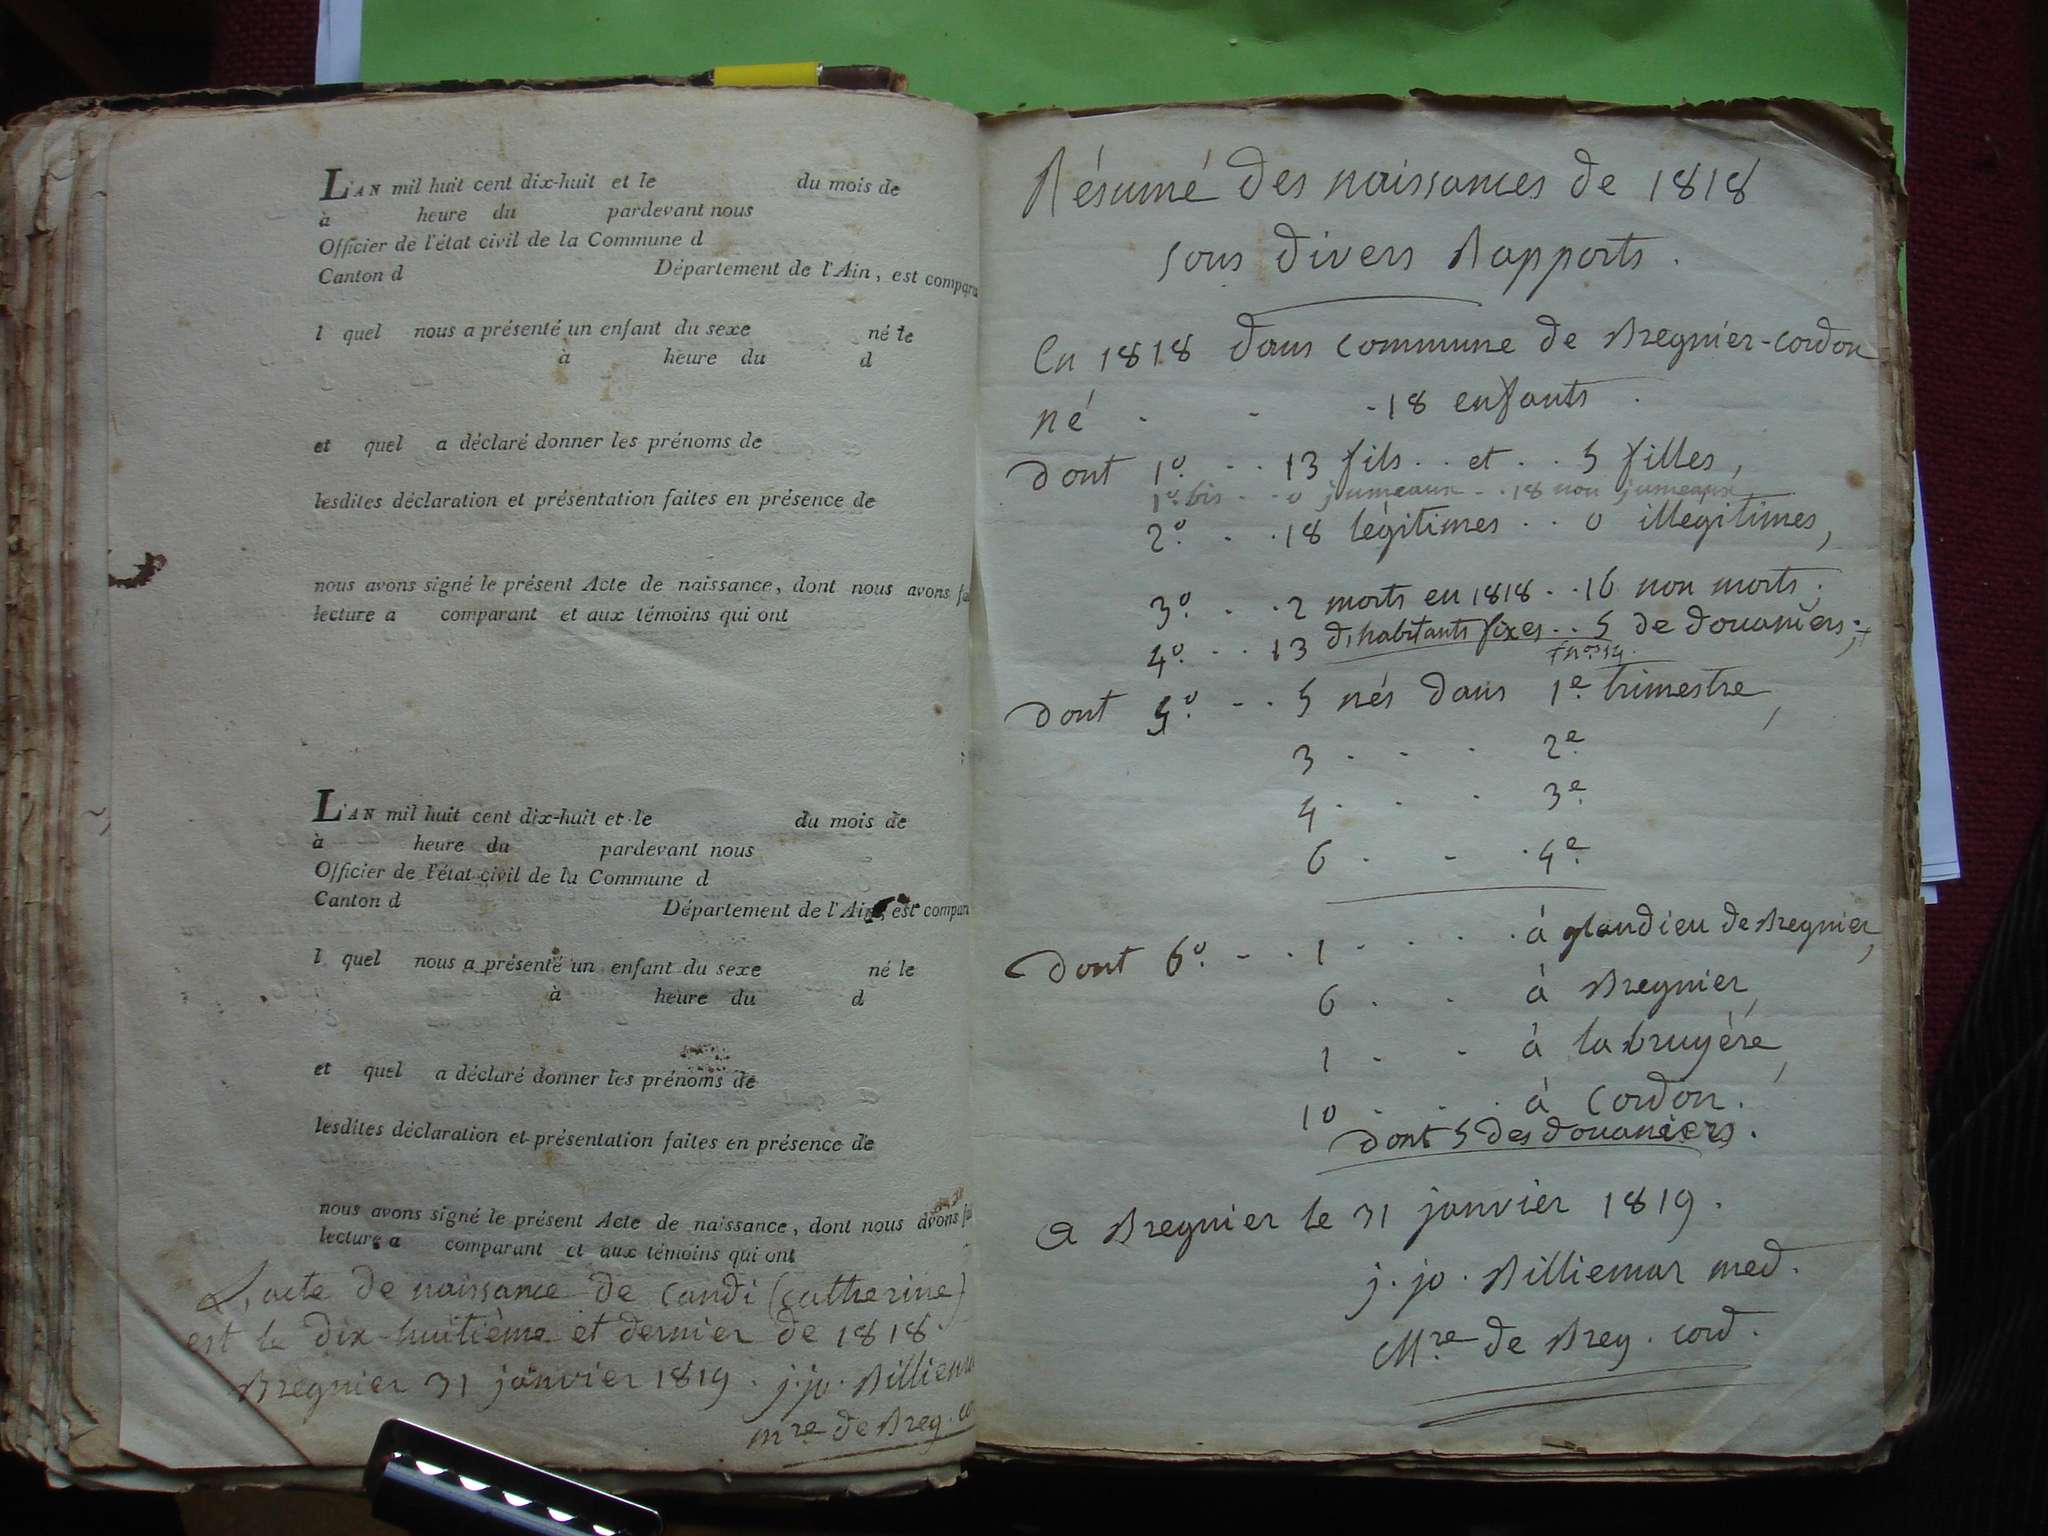 L'AN mil huit cent dix-huit et le du mois de
à heure du pardevant nous
Officier de l'état civil de la Commune d
Canton d Département de l'Ain, est comparu
l quel nous a présenté un enfant du sexe né le
à heure du d
et quel a déclaré donner les prénoms de
lesdites déclaration et présentation faites en présence de
nous avons signé le présent Acte de naissance, dont nous avons fa
lecture a comparant et aux témoins qui ont
L'AN mil huit cent dix-huit et le du mois de
à heure du pardevant nous
Officier de l'état civil de la Commune d
Canton d Département de l'Ain, est compar
l quel nous a présenté un enfant du sexe né le
à heure du d
et quel a déclaré donner les prénoms de
lesdites déclaration et présentation faites en présence de
nous avons signé le présent Acte de naissance, dont nous avons fa
lecture a comparant et aux témoins qui ont
L'acte de naissance de Candi (Catherine)
est le dix-huitième et dernier de 1818.
Bregnier 31 janvier 1819. j. jo. Billiema
mre de Breg. co
Résumé des naissances de 1818
sous divers Rapports.
En 1818 dans commune de Bregnier-cordon
né . - - 18 enfants.
dont 1º. . . 13 fils . . et . . 5 filles,
1º. bis - - 0 jumeaux - . 18 non jumeaux
2º. . . 18 légitimes . . 0 illegitimes,
3º. . . 2 morts en 1818 . . 16 non morts.
4º. . . 13 d'habitants fixes . . 5 de douaniers;+
+nos 14.
dont 5º. - . 5 nés dans 1e. trimestre,
3 . . . 2e.
4 . . . 3e.
6 . - . 4e.
dont 6º. - . 1 . . . . à glandieu de Bregnier,
6 . . à Bregnier,
1 . . à la bruyère,
10 . . . à Cordon.
dont 5 des douaniers.
a Bregnier le 31 janvier 1819.
j. jo. Billiemar med.
Mre de Breg. cord.